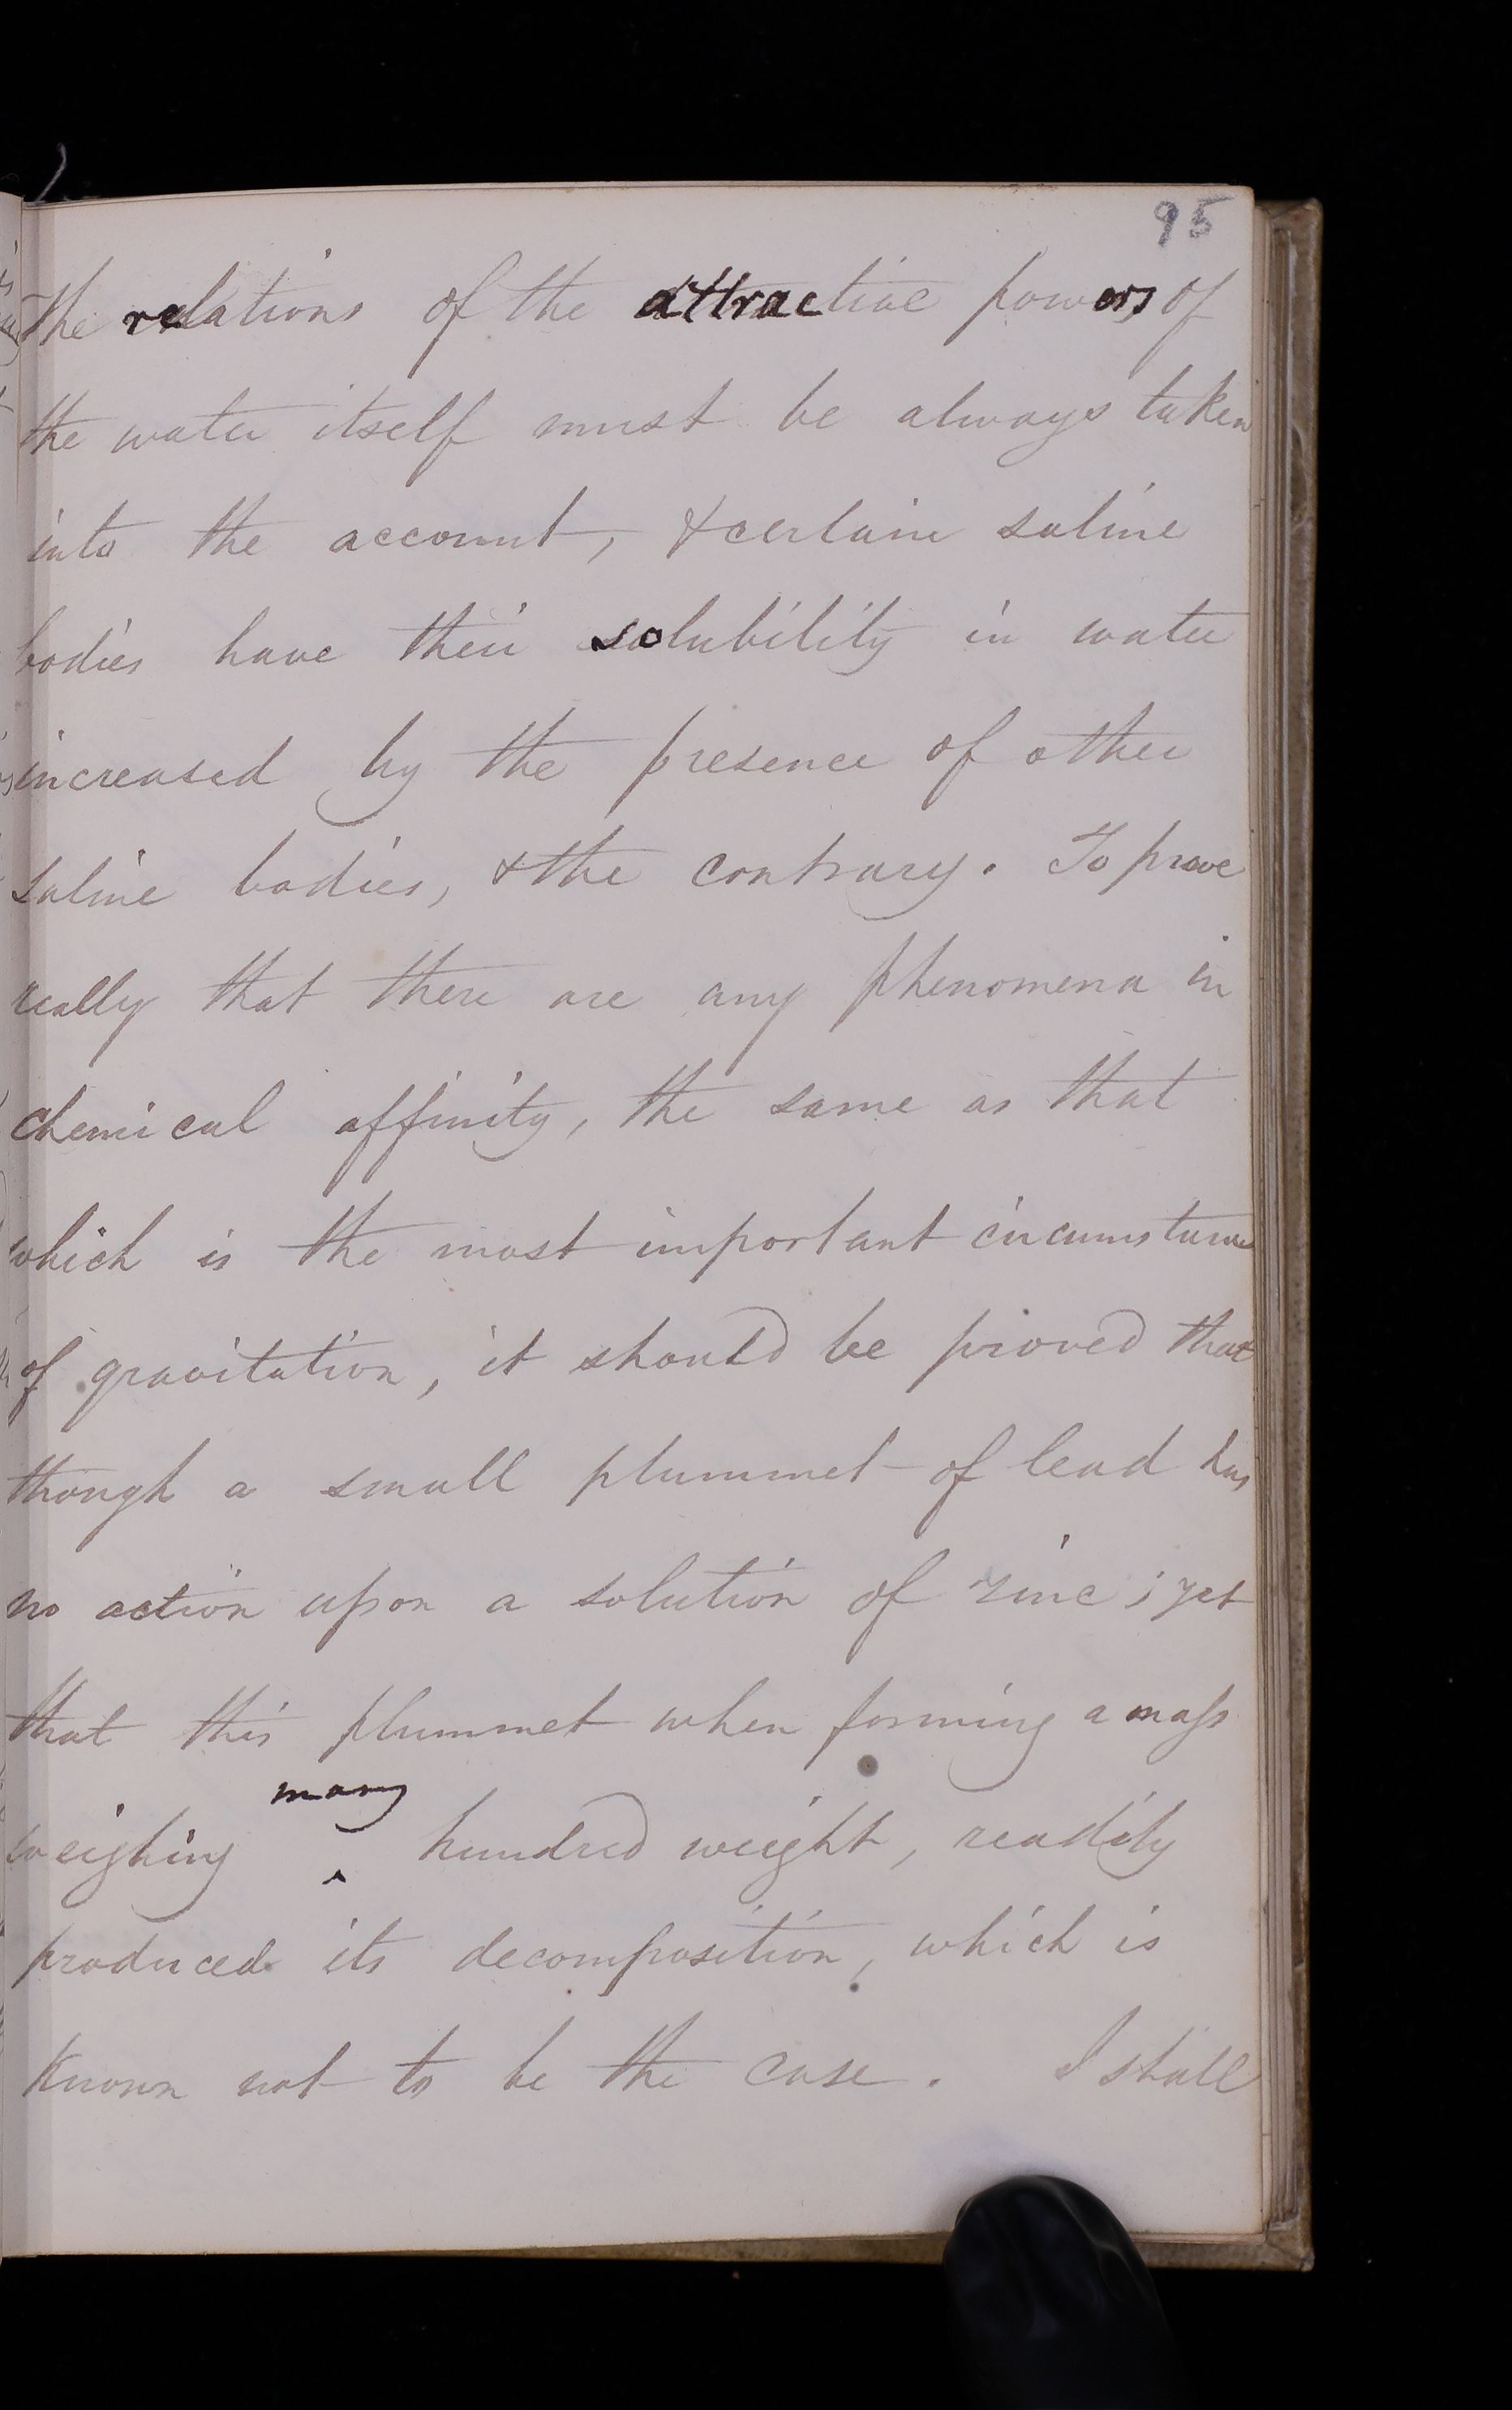 95
the relations of the attractive powers of
the water itself must be always taken
into the account, & certain saline
bodies have their solubility in water
increased by the presence of other
saline bodies, & the contrary. To prove
really that there are any phenomena in
chemical affinity, the same as that
which is the most important circumstance
of gravitation, it should be proved that
though a small plummet of lead has
no action upon a solution of zinc; yet
that this plummet when forming a mass
many
weighing ^ hundred weight, readily
produced its decomposition, which is
known not to be the case. I shall